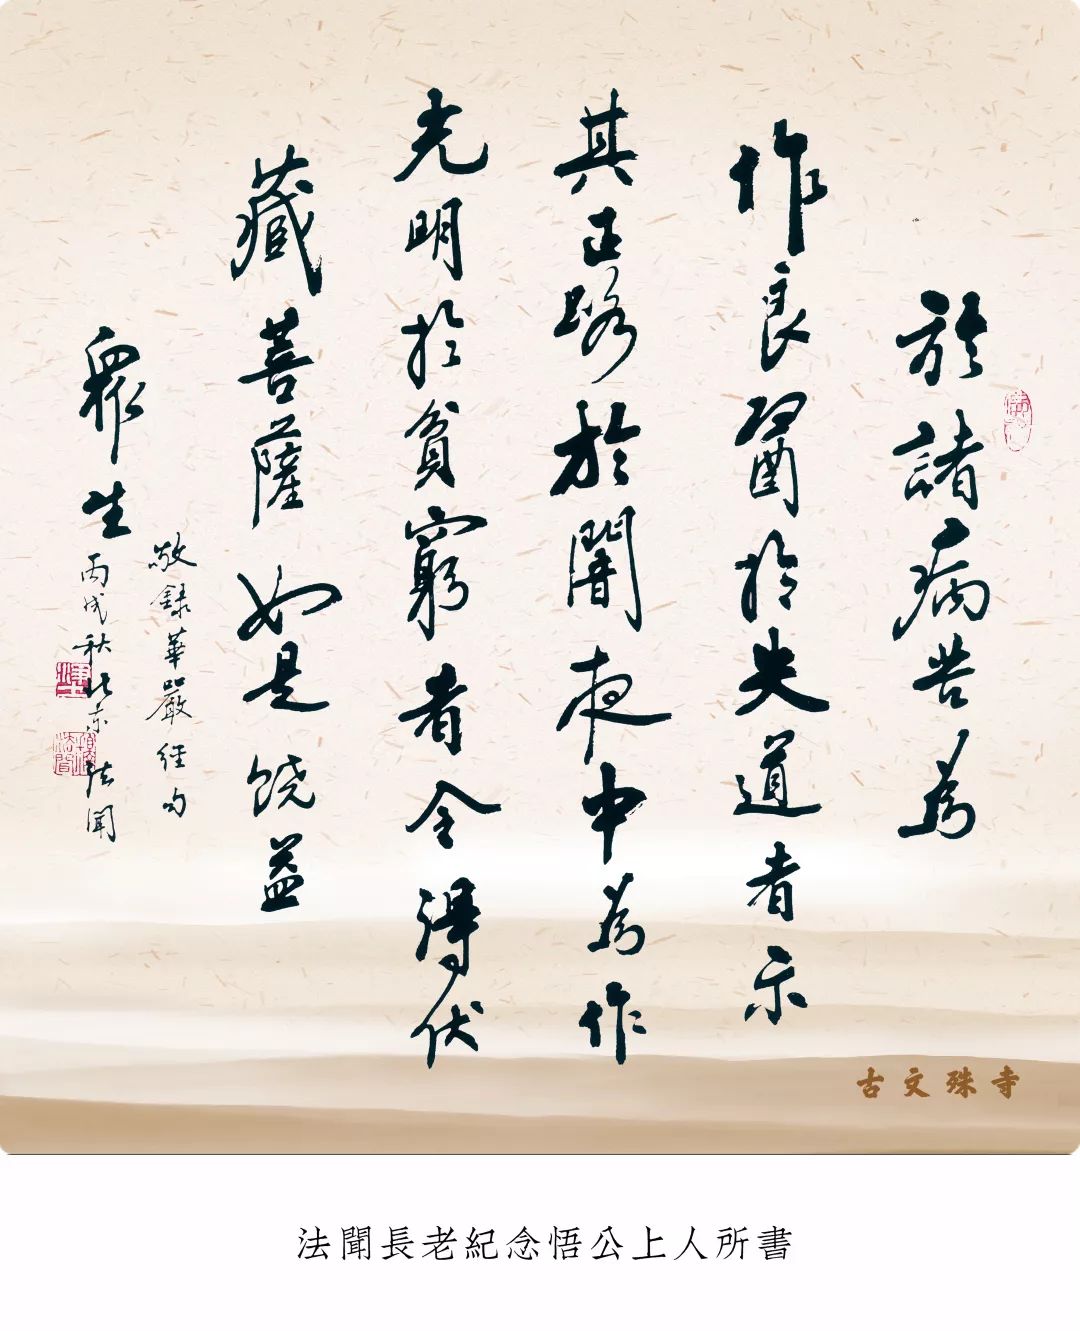 於諸病苦為
作良醫於失道者示
其正路於闇夜中為作
光明於貧窮者令得伏
藏菩薩如是饒益
眾生
敬錄華嚴經句
丙戌秋北京法聞
古文殊寺
法聞長老紀念悟公上人所書